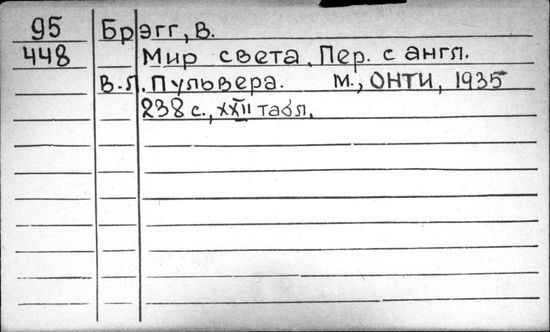 95 Брэгг, В.
448 Мир света. Пер. с англ.
В.Л. Пульвера. М., ОНТИ, 1935
238 с., XXII табл.